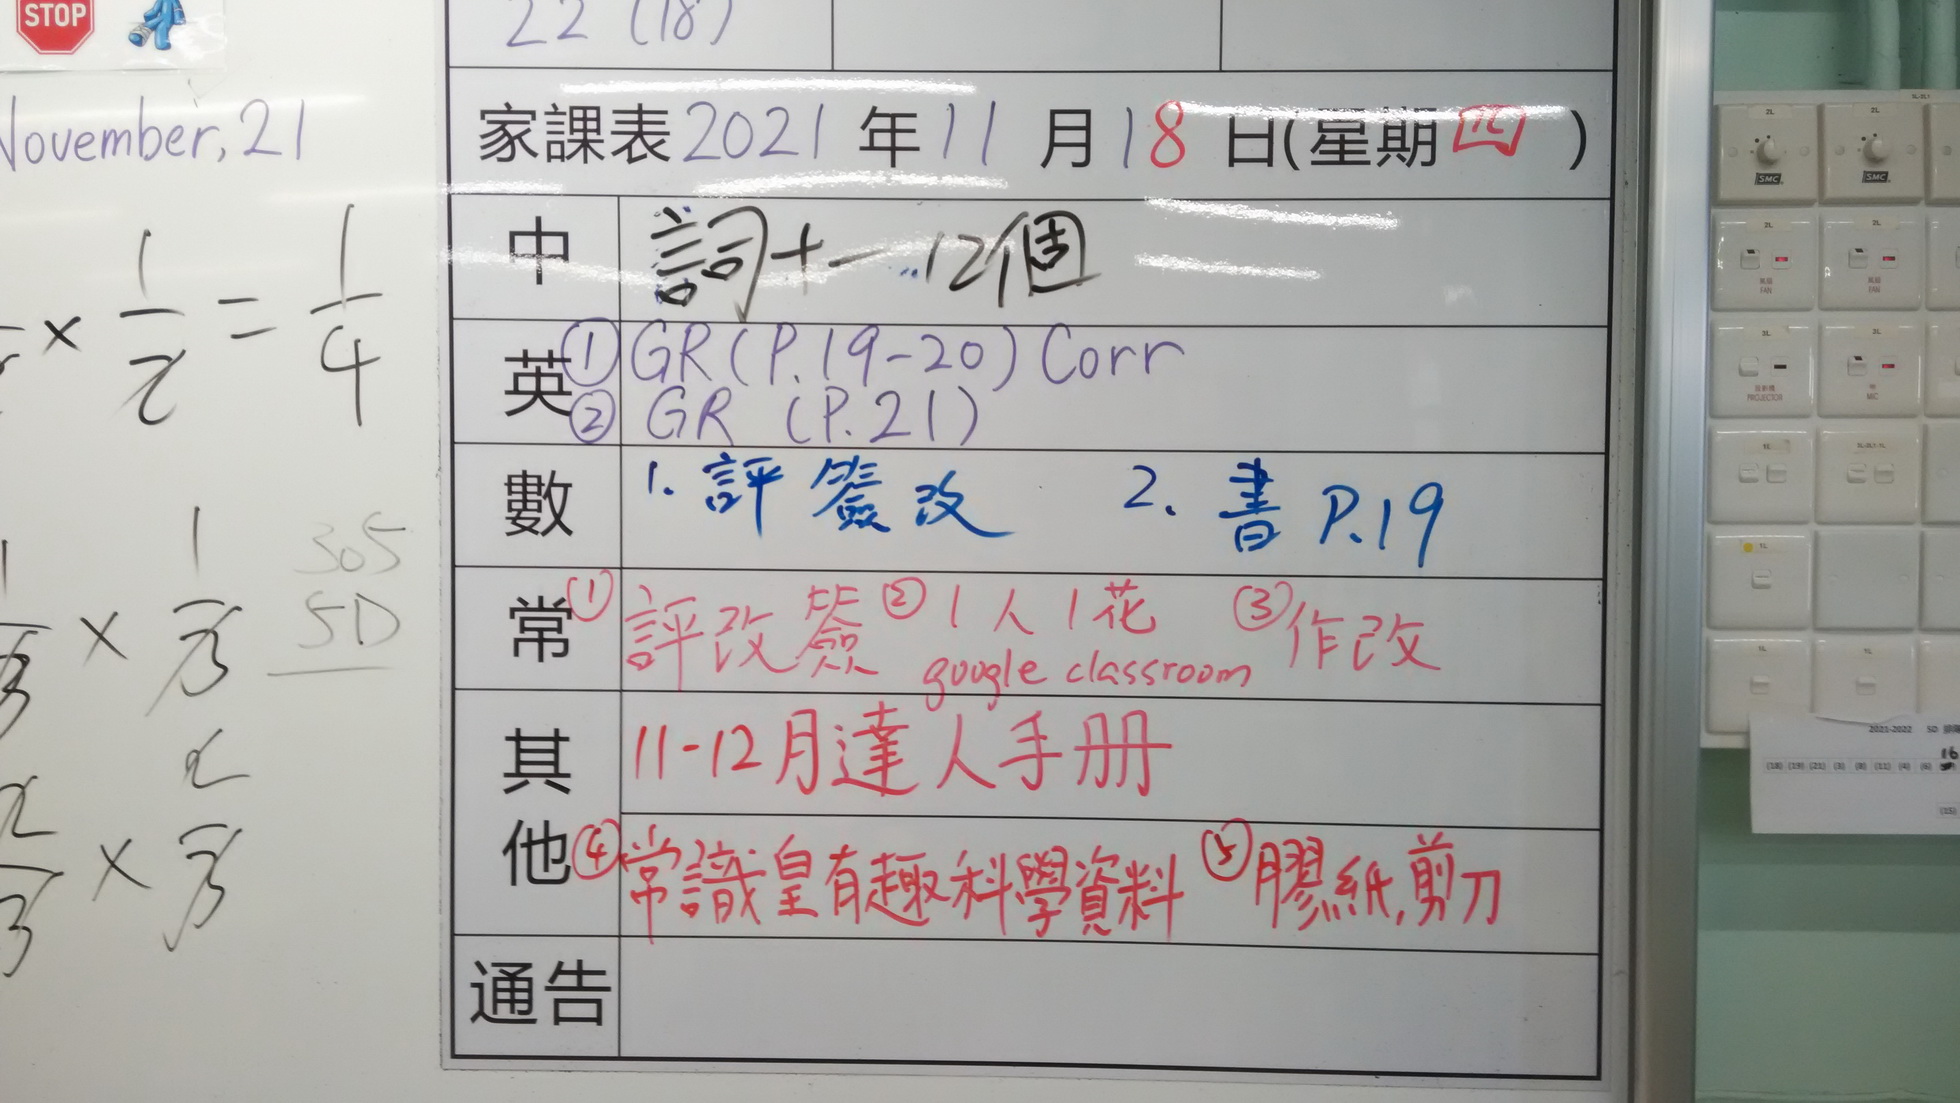 STOP
22 (18)
November, 21
家課表 2021 年 11 月 18 日(星期四)
中 詞十一 12個
英 ① GR (P.19-20) Corr
② GR (P.21)
數 1. 評簽改 2. 書 P.19
常 ① 評改簽 ② 1人1花 google classroom ③ 作改
其他 11-12月達人手册
④ 常識皇有趣科學資料 ⑤ 膠紙,剪刀
通告
× 1/2 = 1/4
× 1/3
305
5D
2
× 3
2L
2L
SMC
SMC
2L
2L
FAN
FAN
2L
2L
PROJECTOR
MIC
1L
1L
1L
2021-2022 5D
16
(18) (19) (21) (3) (8) (11) (4) (6)
(15)